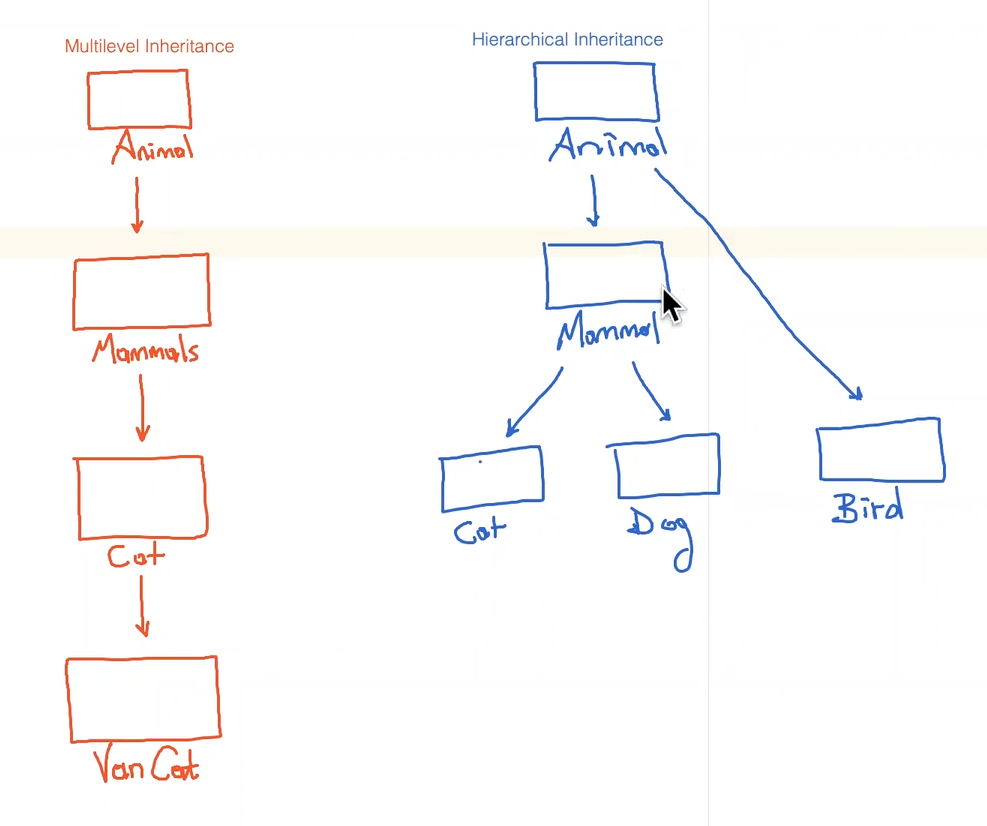 Multilevel Inheritance
Animal
Mammals
Cat
Van Cat
Hierarchical Inheritance
Animal
Mammal
Cat
Dog
Bird